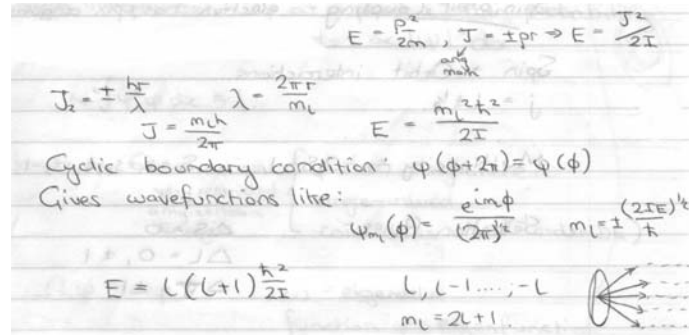 E = p²/2m , J = ±pr ⇒ E = J²/2I
ang mom
J_z = ± hr/λ λ = 2πr/m_l
J = m_l h/2π E = m_l²ħ²/2I
Cyclic boundary condition: ψ(φ+2π) = ψ(φ)
Gives wavefunctions like:
ψ_{m_l}(φ) = e^{imφ}/(2π)^{½} m_l = ± (2IE)^{½}/ħ
E = l(l+1) ħ²/2I l, l-1...., -l
m_l = 2l+1